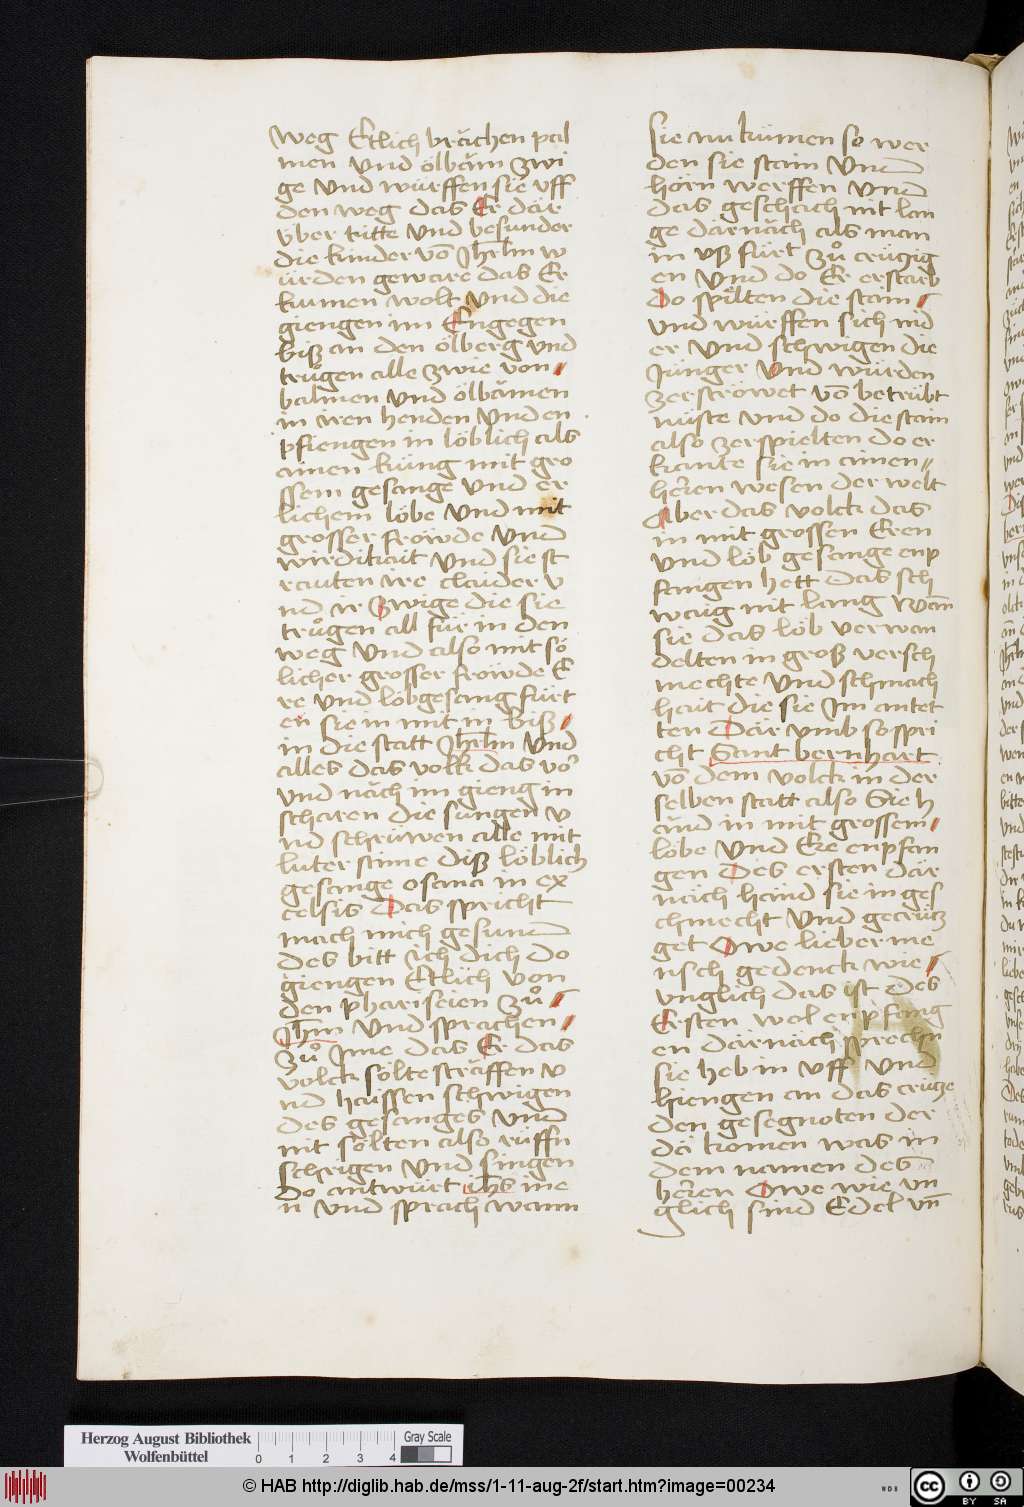 weg Etlich brächen pal
men vnd ölbäm zwi
ge vnd würffen sie vff
den weg das Er dar
über ritte vnd besunder
die kinder vō Jhrlm w
ürden geware das Er
kumen wolt vnd die
giengen im Engegen
biß an den ölberg vnd
trůgen alle zwie von
balmen vnd ölbämen
in iren henden vnd en
pfiengen in löblich als
ainen küng mit gro
ssem gesange vnd er
lichem löbe vnd mit
grosser fröwde vnd
wirdikait vnd sie st
rauten ire claider v
nd ir zwige die sie
trůgen all für in den
weg vnd also mit sö
licher grosser fröwde E
re vnd löbgesang fürt
en sie in mit in biß
in die statt Jhrlm vnd
alles das volk das vor
vnd näch im gieng in
scharen die sungen v
nd schrüwen alle mit
luter stime diß löblich
gesange osana in ex
celsis Das spricht
mach mich gesund
des bitt ich dich do
giengen Etlich von
den phariseien zů
Jhm vnd sprachen
zů Jme das Er das
volck sölte sträffen v
nd haissen schwigen
des gesanges vnd
nit sölten also rüffn
schrigen vnd singen
do antwürt ihs ine
n vnd sprach wann
sie nu kumen so wer
den sie stain vnd
hörn werffen vnd
das geschach nit lan
ge därnäch als man
in vß fürt zů crüzig
en vnd do Er erstarb
do spilten die stain
vnd würffen sich nid
er vnd schwigen die
Jünger vnd würden
zerströwet vō betrübt
nüste vnd do die stain
also zerspielten do er
kante sie in ainen
herren wesen der welt
Aber das volck das
in mit grossen Eren
vnd löb gesange enp
fangen hett das sch
waig nit lang wan
sie das löb verwan
delten in groß versch
mechte vnd schmach
hait die sie Jm antet
ten Där vmb so spri
cht Sant bernhart
vō dem volck in der
selben statt also Sie h
änd in mit grossem
löbe vnd Ere enpfan
gen Des ersten där
näch händ sie in ges
chmecht vnd gecrütz
get Owe lieber me
nsch gedenck wie
vnglich das ist Des
Ersten wol enpfang
en därnäch sprechn
sie heb in vff vnd
hiengen an das crütze
den gesegnoten der
dä komen was in
dem namen des
herren Owe wie vn
glich sind Edel vn̄
Herzog August Bibliothek
Wolfenbüttel
0 1 2 3 4
Gray Scale
© HAB http://diglib.hab.de/mss/1-11-aug-2f/start.htm?image=00234
WDB
cc BY SA